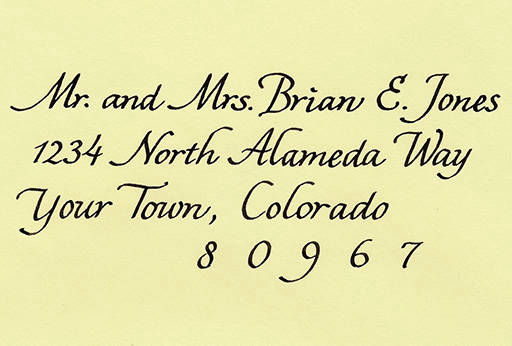 Mr. and Mrs. Brian E. Jones
1234 North Alameda Way
Your Town, Colorado
8 0 9 6 7